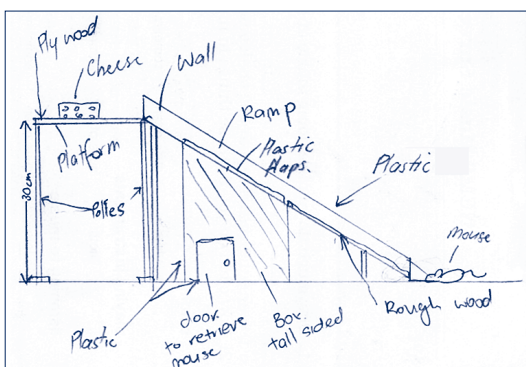 Plywood
Cheese
Wall
Ramp
Plastic
flaps.
Plastic
Platform
Polles
30cm
mouse
Rough wood
Box.
tall sided
door
to retrieve
mouse
Plastic